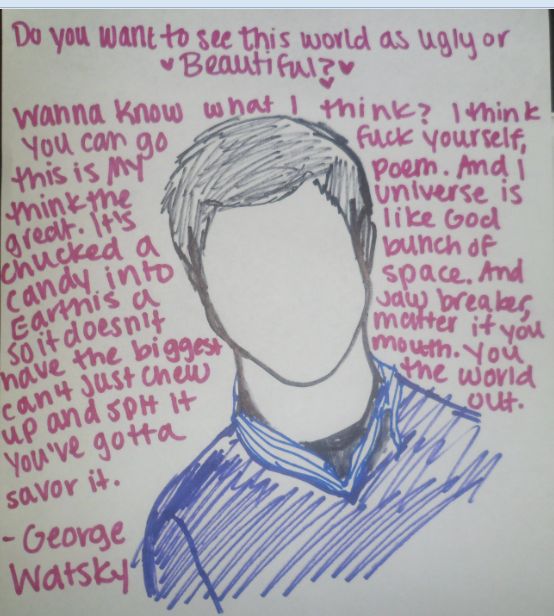 Do you want to see this world as ugly or
Beautiful?
Wanna know what I think? I think
you can go fuck yourself,
this is my poem. And I
think the universe is
great. It's like God
chucked a bunch of
candy into space. And
Earth is a jaw breaker,
so it doesn't matter if you
have the biggest mouth. You
can't just chew the world
up and spit it out.
You've gotta
savor it.
- George
Watsky